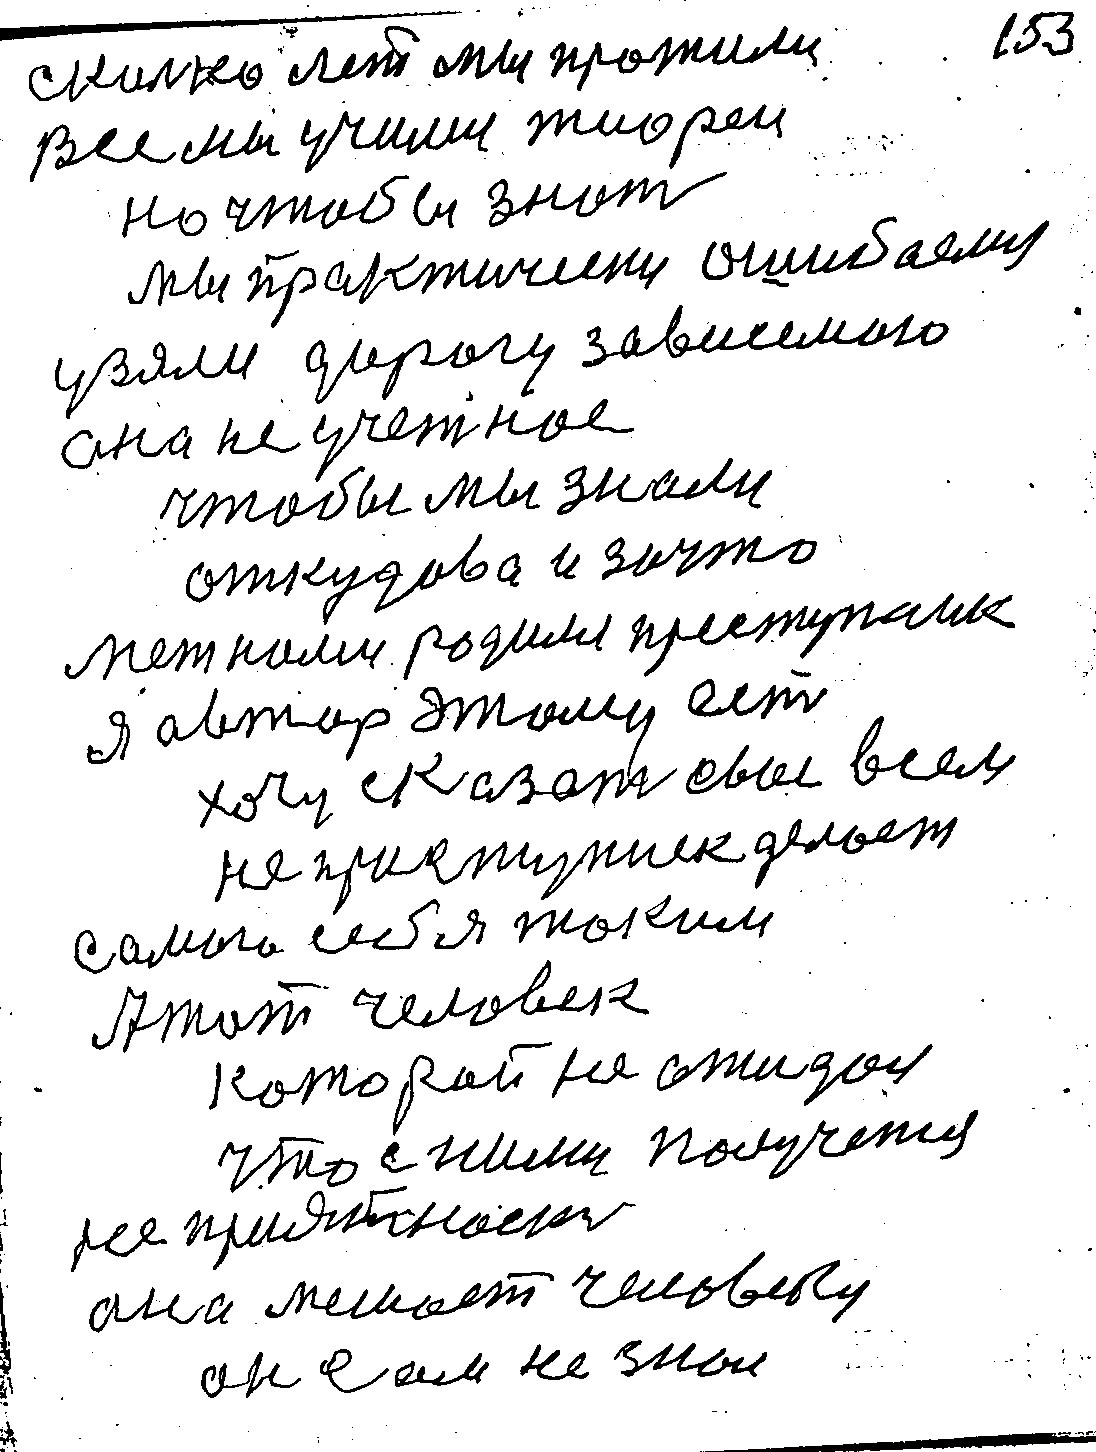 153
сколко лет мы прожили
все мы учили тиореи
но чтобы знат
мы практически ошибаемся
узяли дорогу зависемою
она не учетное
чтобы мы знали
откудова и зачто
меж нами родили преступник
я автор этому ест
хочу сказат свое всем
не приступник делает
самого себя таким
А тот человек
которой не ожидал
что с ними получется
не приятност
она мешает человеку
он сам не знал